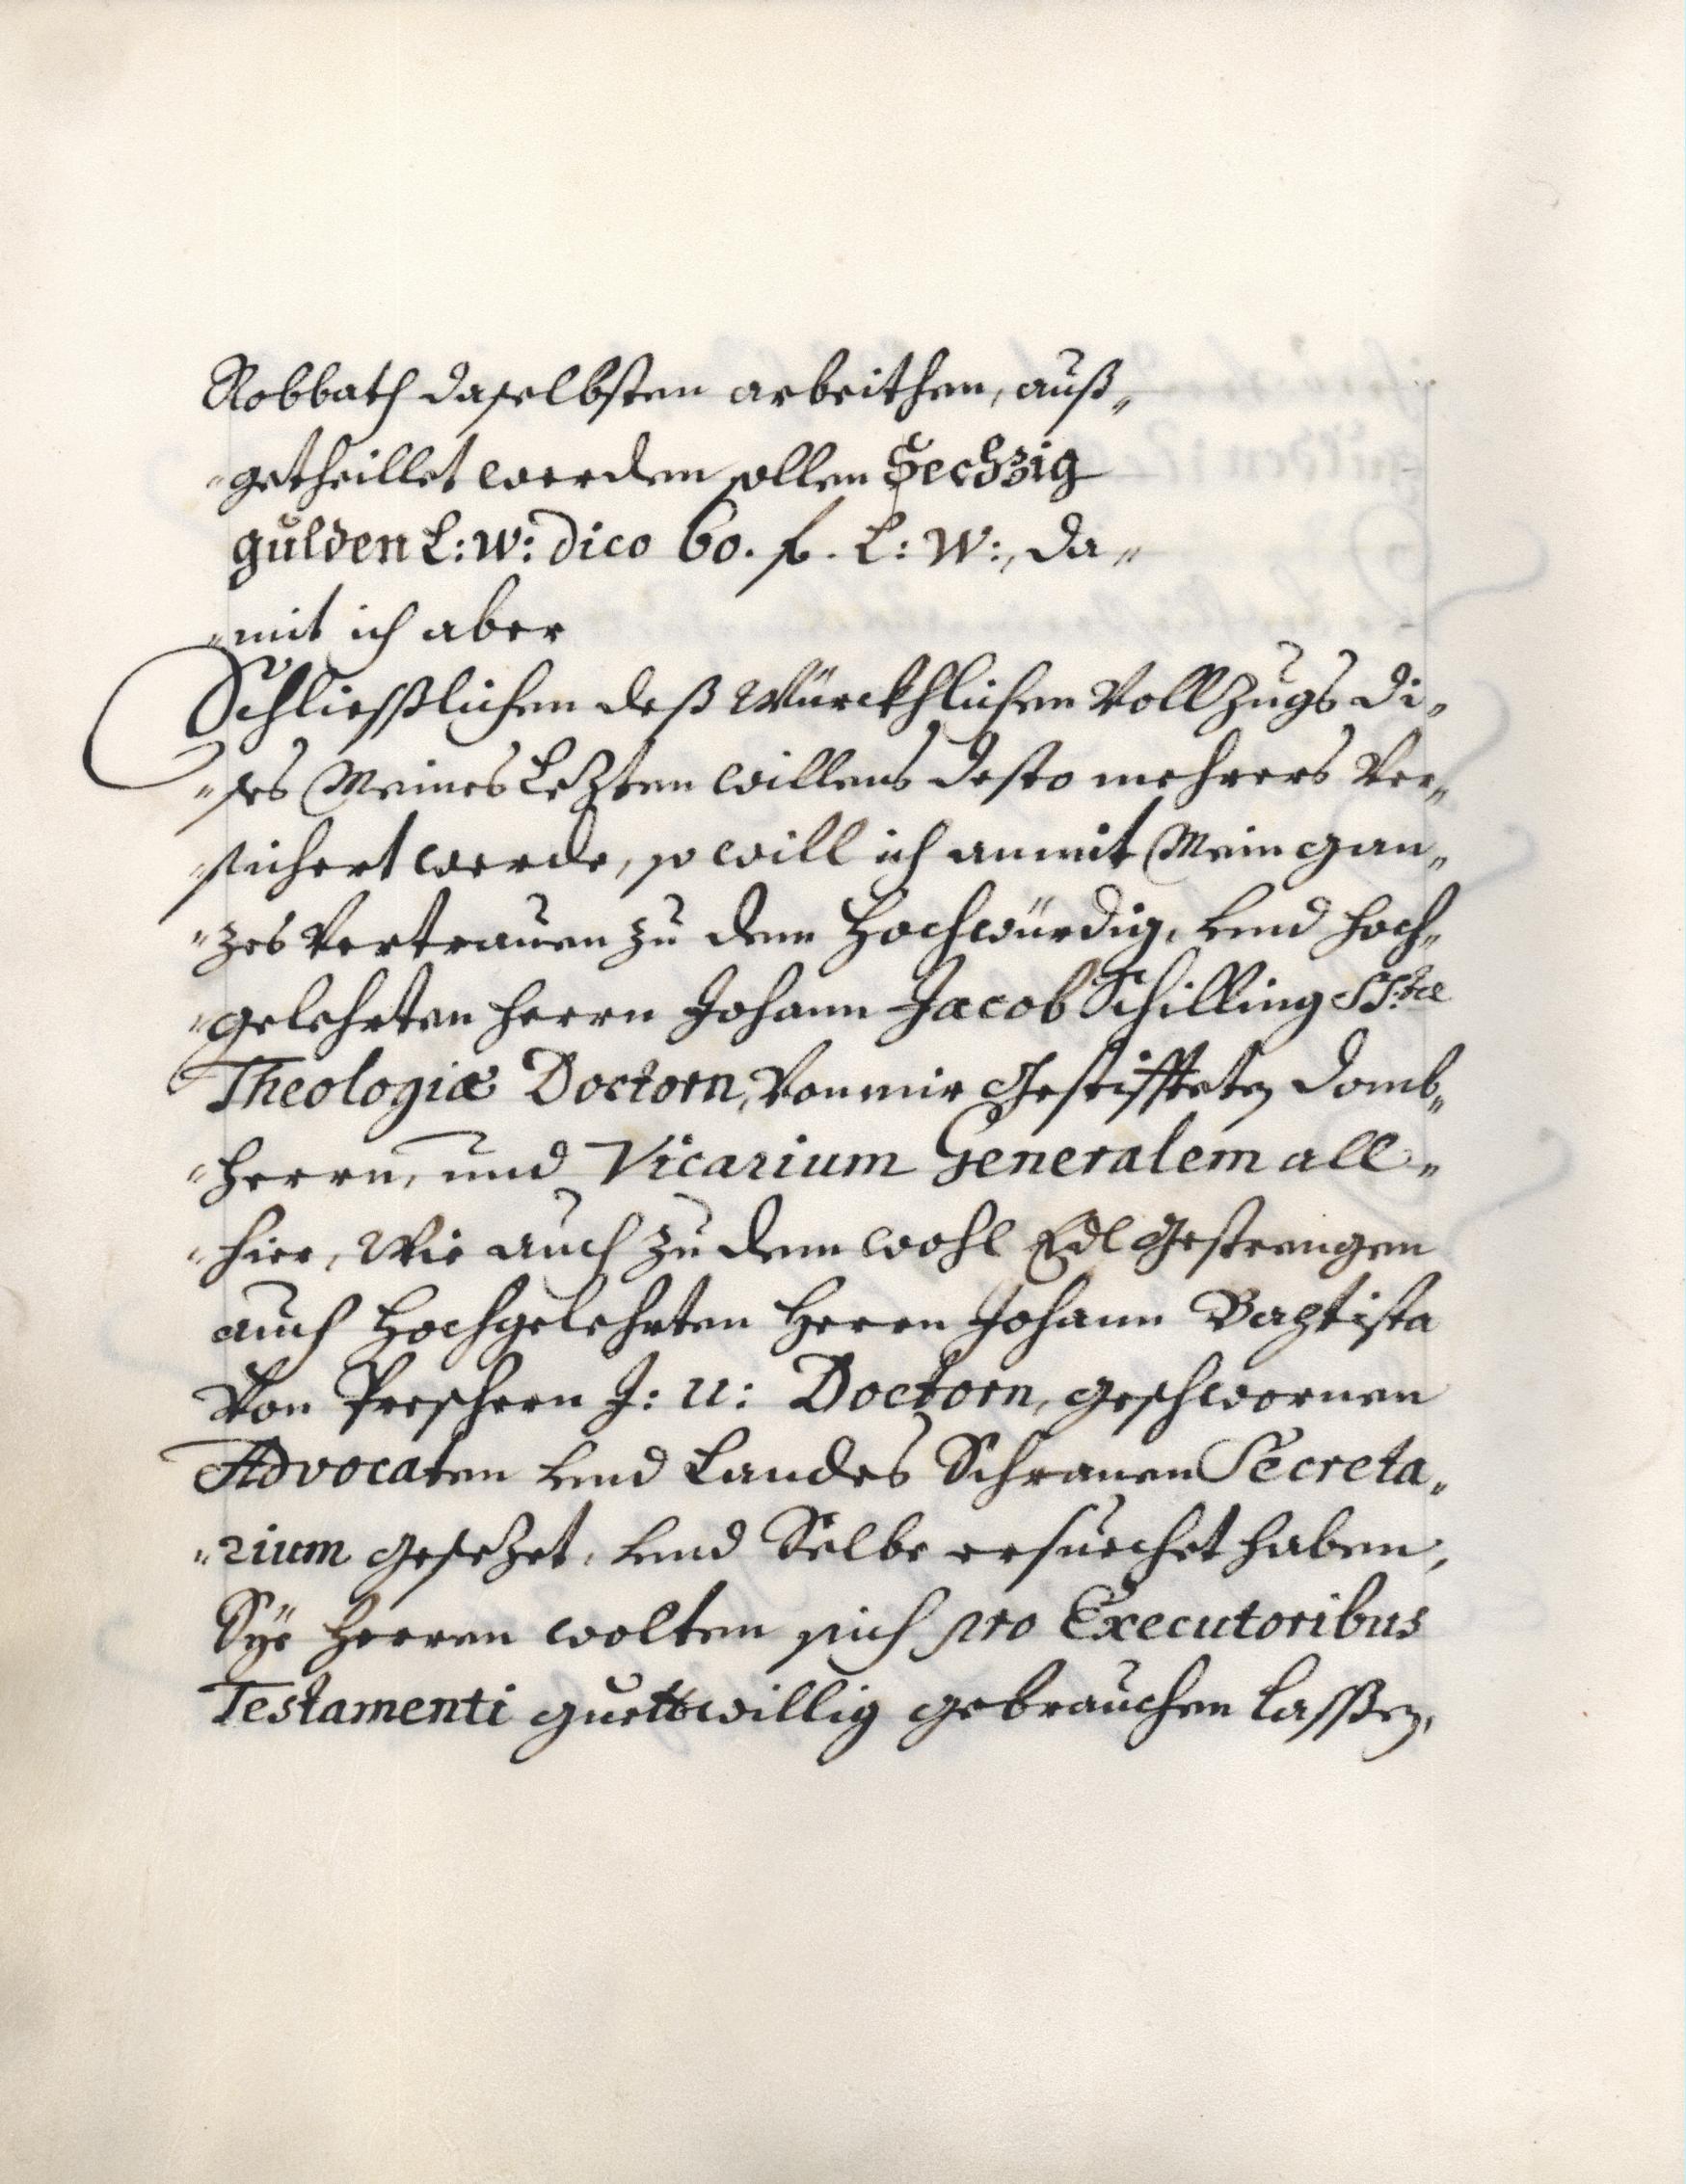 Robbath daselbsten arbeithen, auß„
„getheillet werden sollen Sechzig
gulden L: W: dico 60. f. L: W:, da„
„mit ich aber
Schließlichen deß Würckhlichen Vollzugs di„
„ses Meines Lezten willens desto mehrers Ver„
„sichert werde, so will ich anmit Mein gan„
„zes Vertrauen zu dem Hochwürdig, und hoch„
„gelehrten Herrn Johann Jacob Schilling SS.tae
Theologiæ Doctorn, Von mir Gestiffteten Domb„
„herrn, und Vicarium Generalem all„
„hier, Wie auch zu dem wohl Edl Gestrengen
auch Hochgelehrten Herrn Johann Baptista
Von Preschern J: U: Doctorn, geschwornen
Advocaten und Landes Schranen Secreta„
„rium gesezet, und Selbe ersuechet haben,
Sÿe Herren wolten sich pro Executoribus
Testamenti guettwillig gebrauchen lassen,